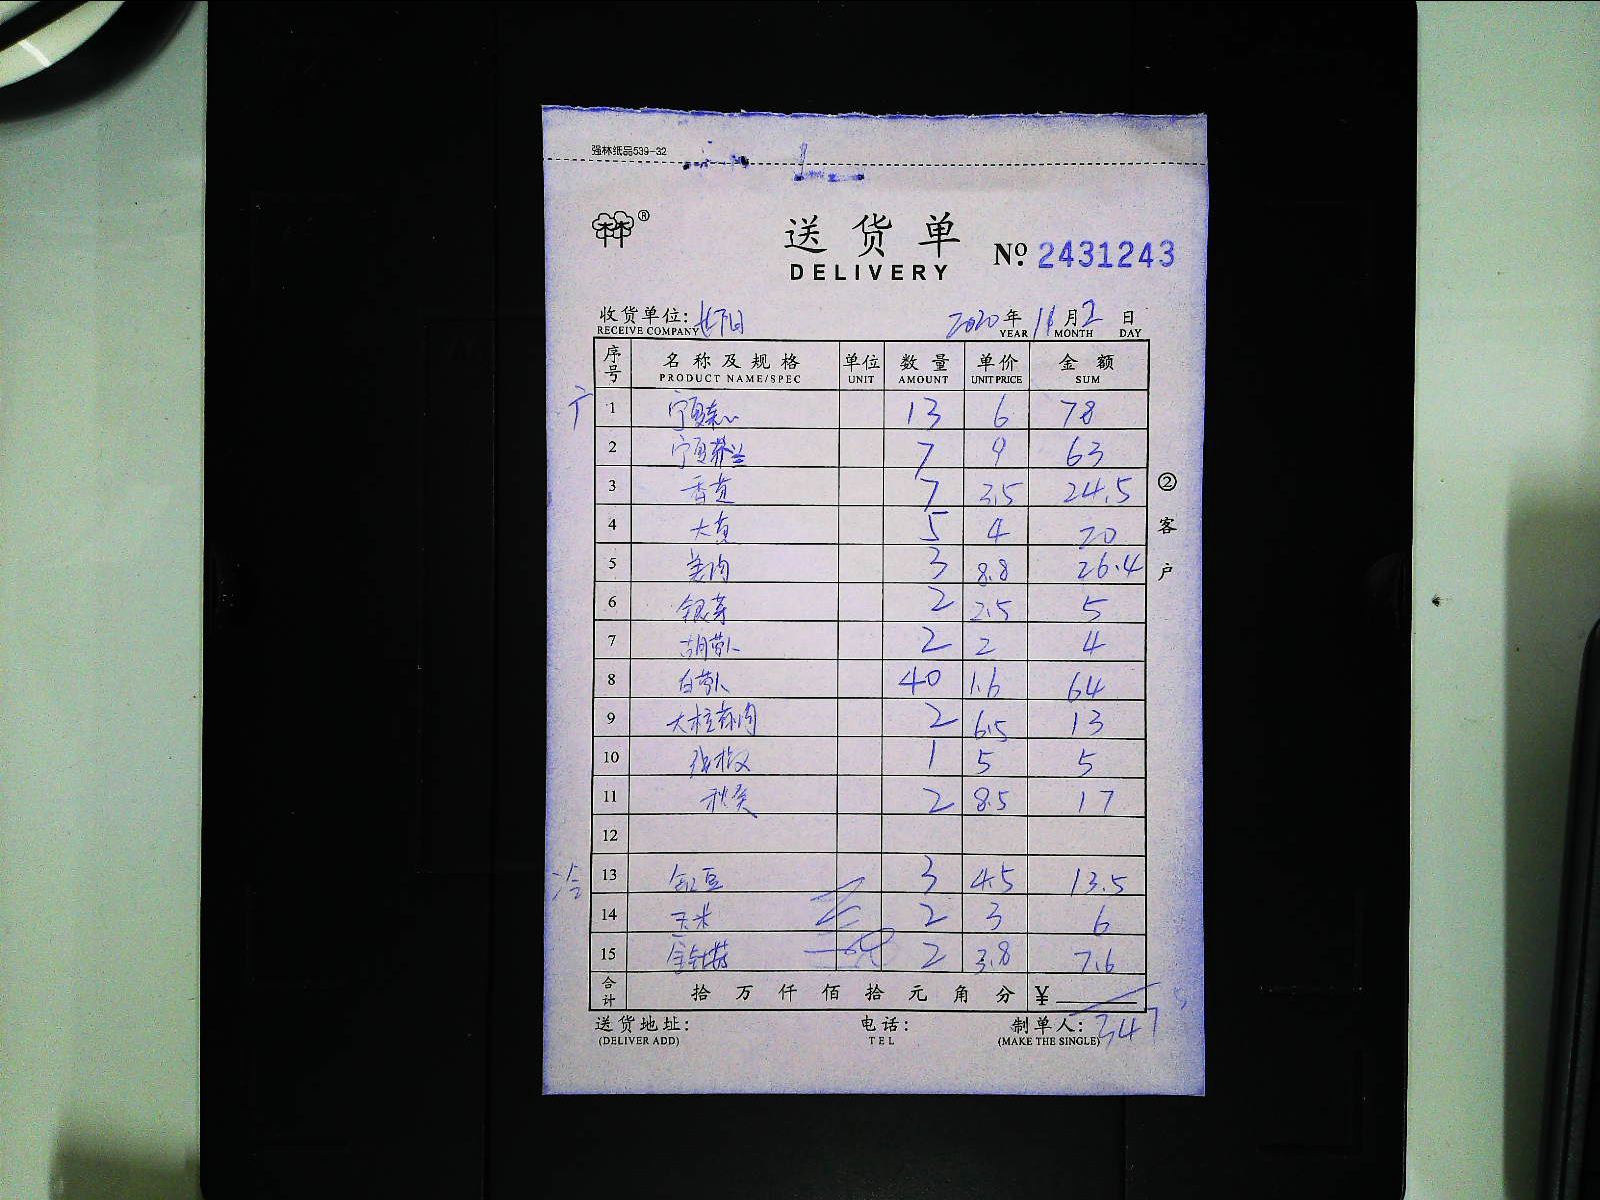 强林纸品539-32
®
送货单
DELIVERY
Nº 2431243
收货单位:
2020年11月2日
RECEIVE COMPANY YEAR MONTH DAY
序号 名称及规格 单位 数量 单价 金额
PRODUCT NAME/SPEC UNIT AMOUNT UNIT PRICE SUM
1 宁夏菜心 13 6 78
2 宁夏芥兰 7 9 63
3 香芹 7 3.5 24.5
4 5 4 20
5 姜肉 3 8.8 26.4
6 银芽 2 2.5 5
7 胡萝卜 2 2 4
8 白萝卜 40 1.6 64
9 2 6.5 13
10 线椒 1 5 5
11 秋葵 2 8.5 17
12
冷 13 豆 3 4.5 13.5
14 玉米 2 3 6
15 金针菇 2 3.8 7.6
合计 拾万仟佰拾元角分 ¥
347
送货地址: 电话: 制单人:
(DELIVER ADD) TEL (MAKE THE SINGLE)
②客户